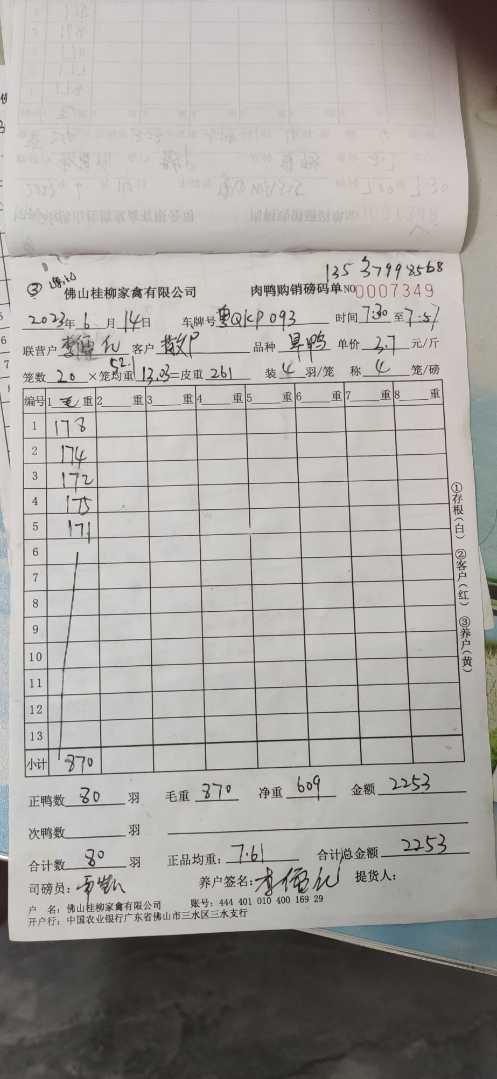 13537998568
③
佛山桂柳家禽有限公司 肉鸭购销磅码单 NO 0007349
2023年 6月 14日 车牌号 粤QKP093 时间 7:30 至 7:51
联营户 李 客户 散户 品种 旱鸭 单价 3.7 元/斤
52.1
笼数 20 ×笼均重 13.03 =皮重 261 装 4 羽/笼 称 4 笼/磅
编号 1 毛 重 2 重 3 重 4 重 5 重 6 重 7 重 8 重
1 178
2 174
3 172
4 175
5 171
6
7
8
9
10
11
12
13
小计 870
①存根(白) ②客户(红) ③养户(黄)
正鸭数 80 羽 毛重 870 净重 609 金额 2253
次鸭数 羽
合计数 80 羽 正品均重: 7.61 合计总金额 2253
司磅员: 养户签名: 李 提货人:
户 名: 佛山桂柳家禽有限公司 账号: 444 401 010 400 169 29
开户行: 中国农业银行广东省佛山市三水区三水支行